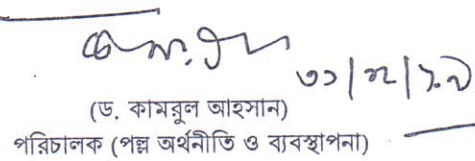 (ড. কামরুল আহসান)
পরিচালক (পল্ল অর্থনীতি ও ব্যবস্থাপনা)